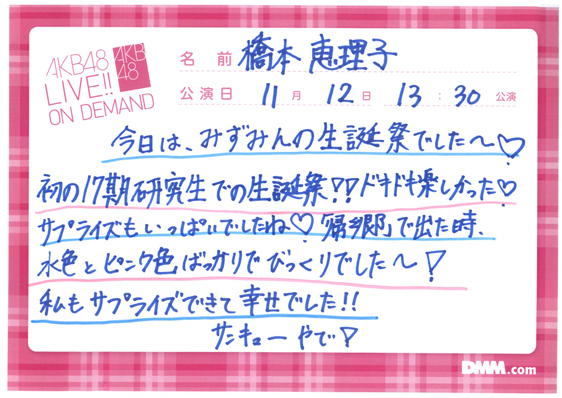 AKB48
LIVE!!
ON DEMAND
AKB
48
名前 橋本恵理子
公演日 11月 12日 13:30 公演
今日は、みずみんの生誕祭でした〜♡
初の17期研究生での生誕祭!!ドキドキ楽しかった♡
サプライズもいっぱいでしたね♡「帰郷」で出た時、
水色とピンク色ばっかりでびっくりでした〜!
私もサプライズできて幸せでした!!
サンキューやで!
DMM.com